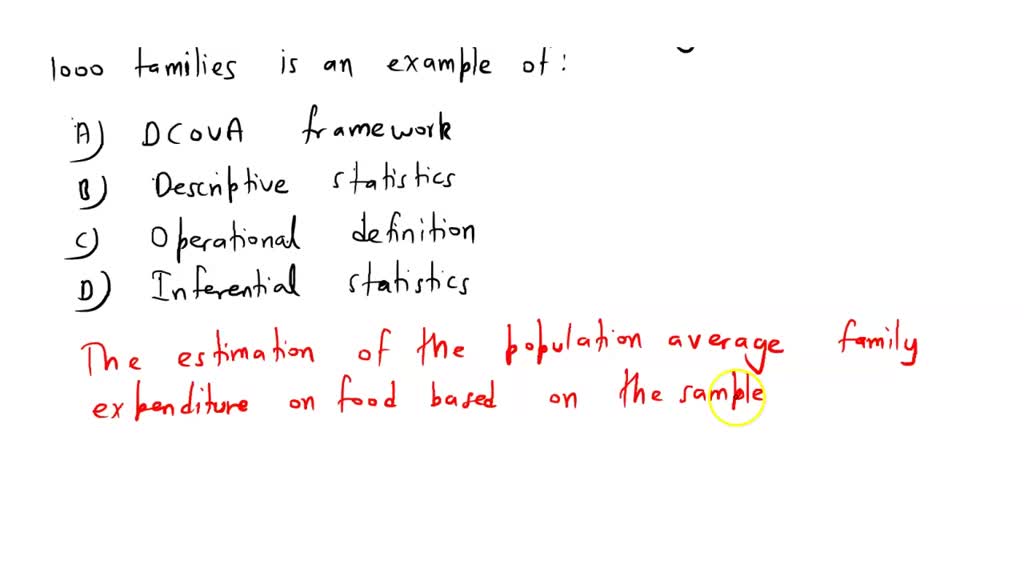 1000 families is an example of:
A) DCOVA framework
B) Descriptive statistics
C) Operational definition
D) Inferential statistics
The estimation of the population average family
expenditure on food based on the sample